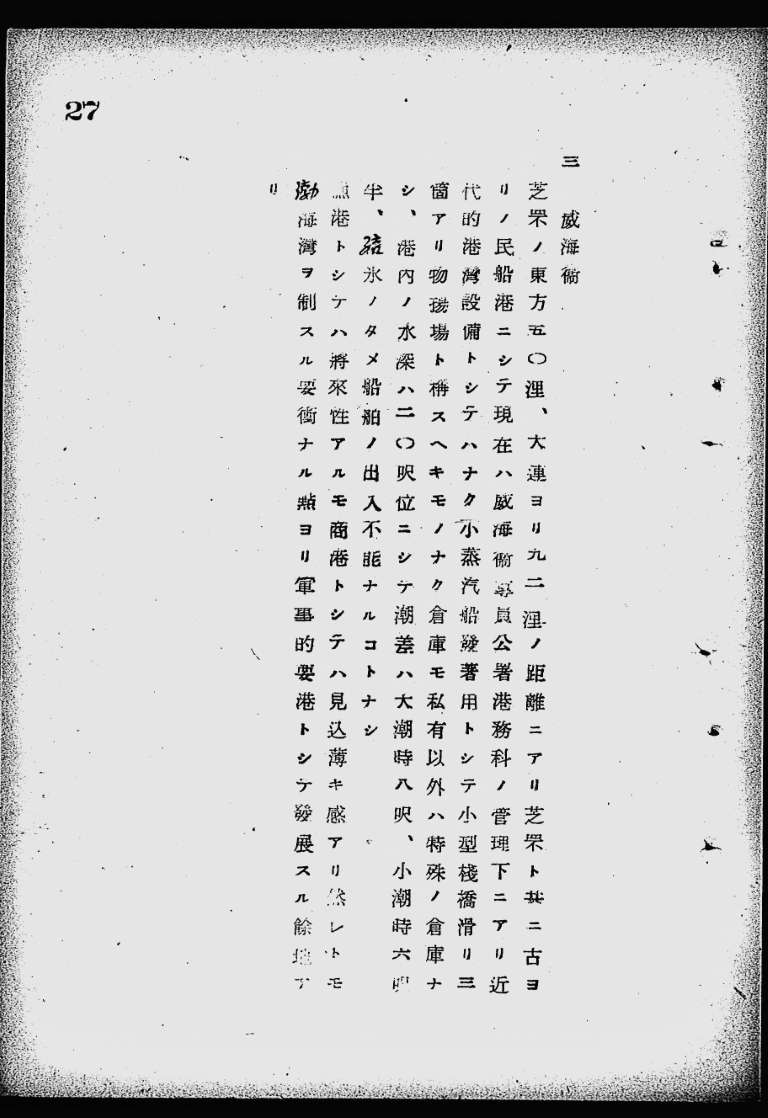 27
三 威海衞
芝罘ノ東方五〇浬、大連ヨリ九二浬ノ距離ニアリ芝罘ト共ニ古ヨ
リノ民船港ニシテ現在ハ威海衞專員公署港務科ノ管理下ニアリ近
代的港灣設備トシテハナク小蒸汽船發著用トシテ小型棧橋滑リ三
箇アリ物揚場ト稱スヘキモノナク倉庫モ私有以外ハ特殊ノ倉庫ナ
シ、港內ノ水深ハ二〇呎位ニシテ潮差ハ大潮時八呎、小潮時六呎
半、結氷ノタメ船舶ノ出入不能ナルコトナシ
漁港トシテハ將來性アルモ商港トシテハ見込薄キ感アリ然レトモ
渤海灣ヲ制スル要衝ナル點ヨリ軍事的要港トシテ發展スル餘地ア
リ